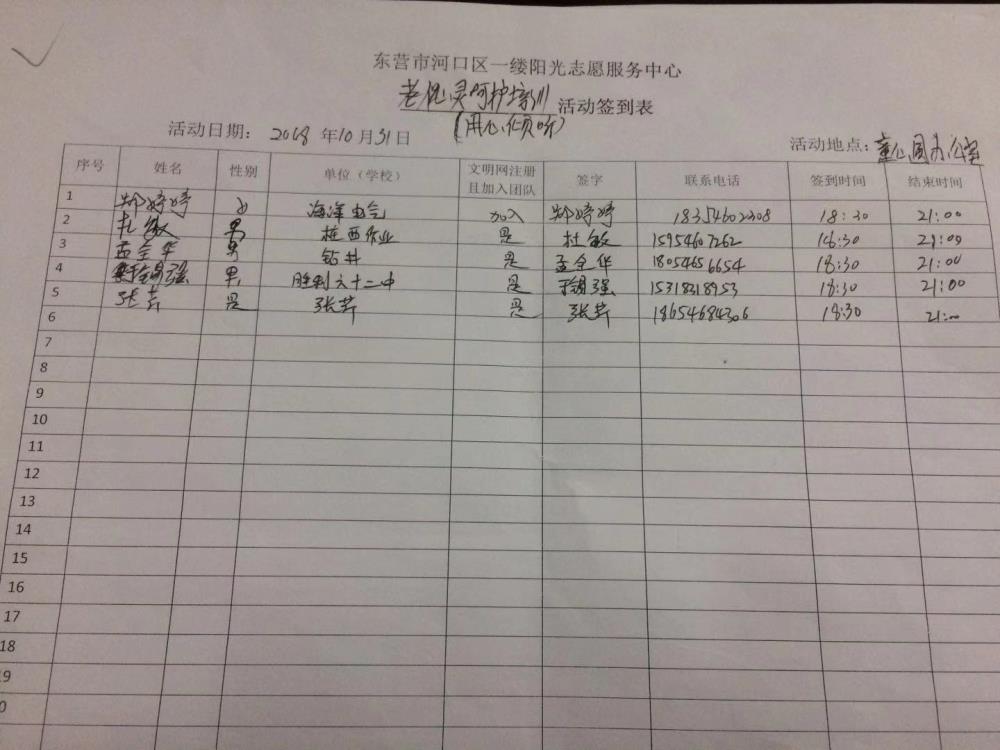 东营市河口区一缕阳光志愿服务中心
心灵呵护培训 活动签到表
(用心倾听)
活动日期: 2018 年 10 月 31 日 活动地点: 童心圆办公室
序号 姓名 性别 单位（学校） 文明网注册且加入团队 签字 联系电话 签到时间 结束时间
1 郑婷婷 女 海洋电气 加入 郑婷婷 18354602308 18:30 21:00
2 杜敏 男 桩西作业 是 杜敏 15954607262 18:30 21:00
3 孟全华 男 钻井 是 孟全华 18054656654 18:30 21:00
4 锡强 男 胜利六十二中 是 锡强 15318318953 18:30 21:00
5 张芹 是 张芹 是 张芹 18654684306 18:30 21:00
6
7
8
9
10
11
12
13
14
15
16
17
18
9
0